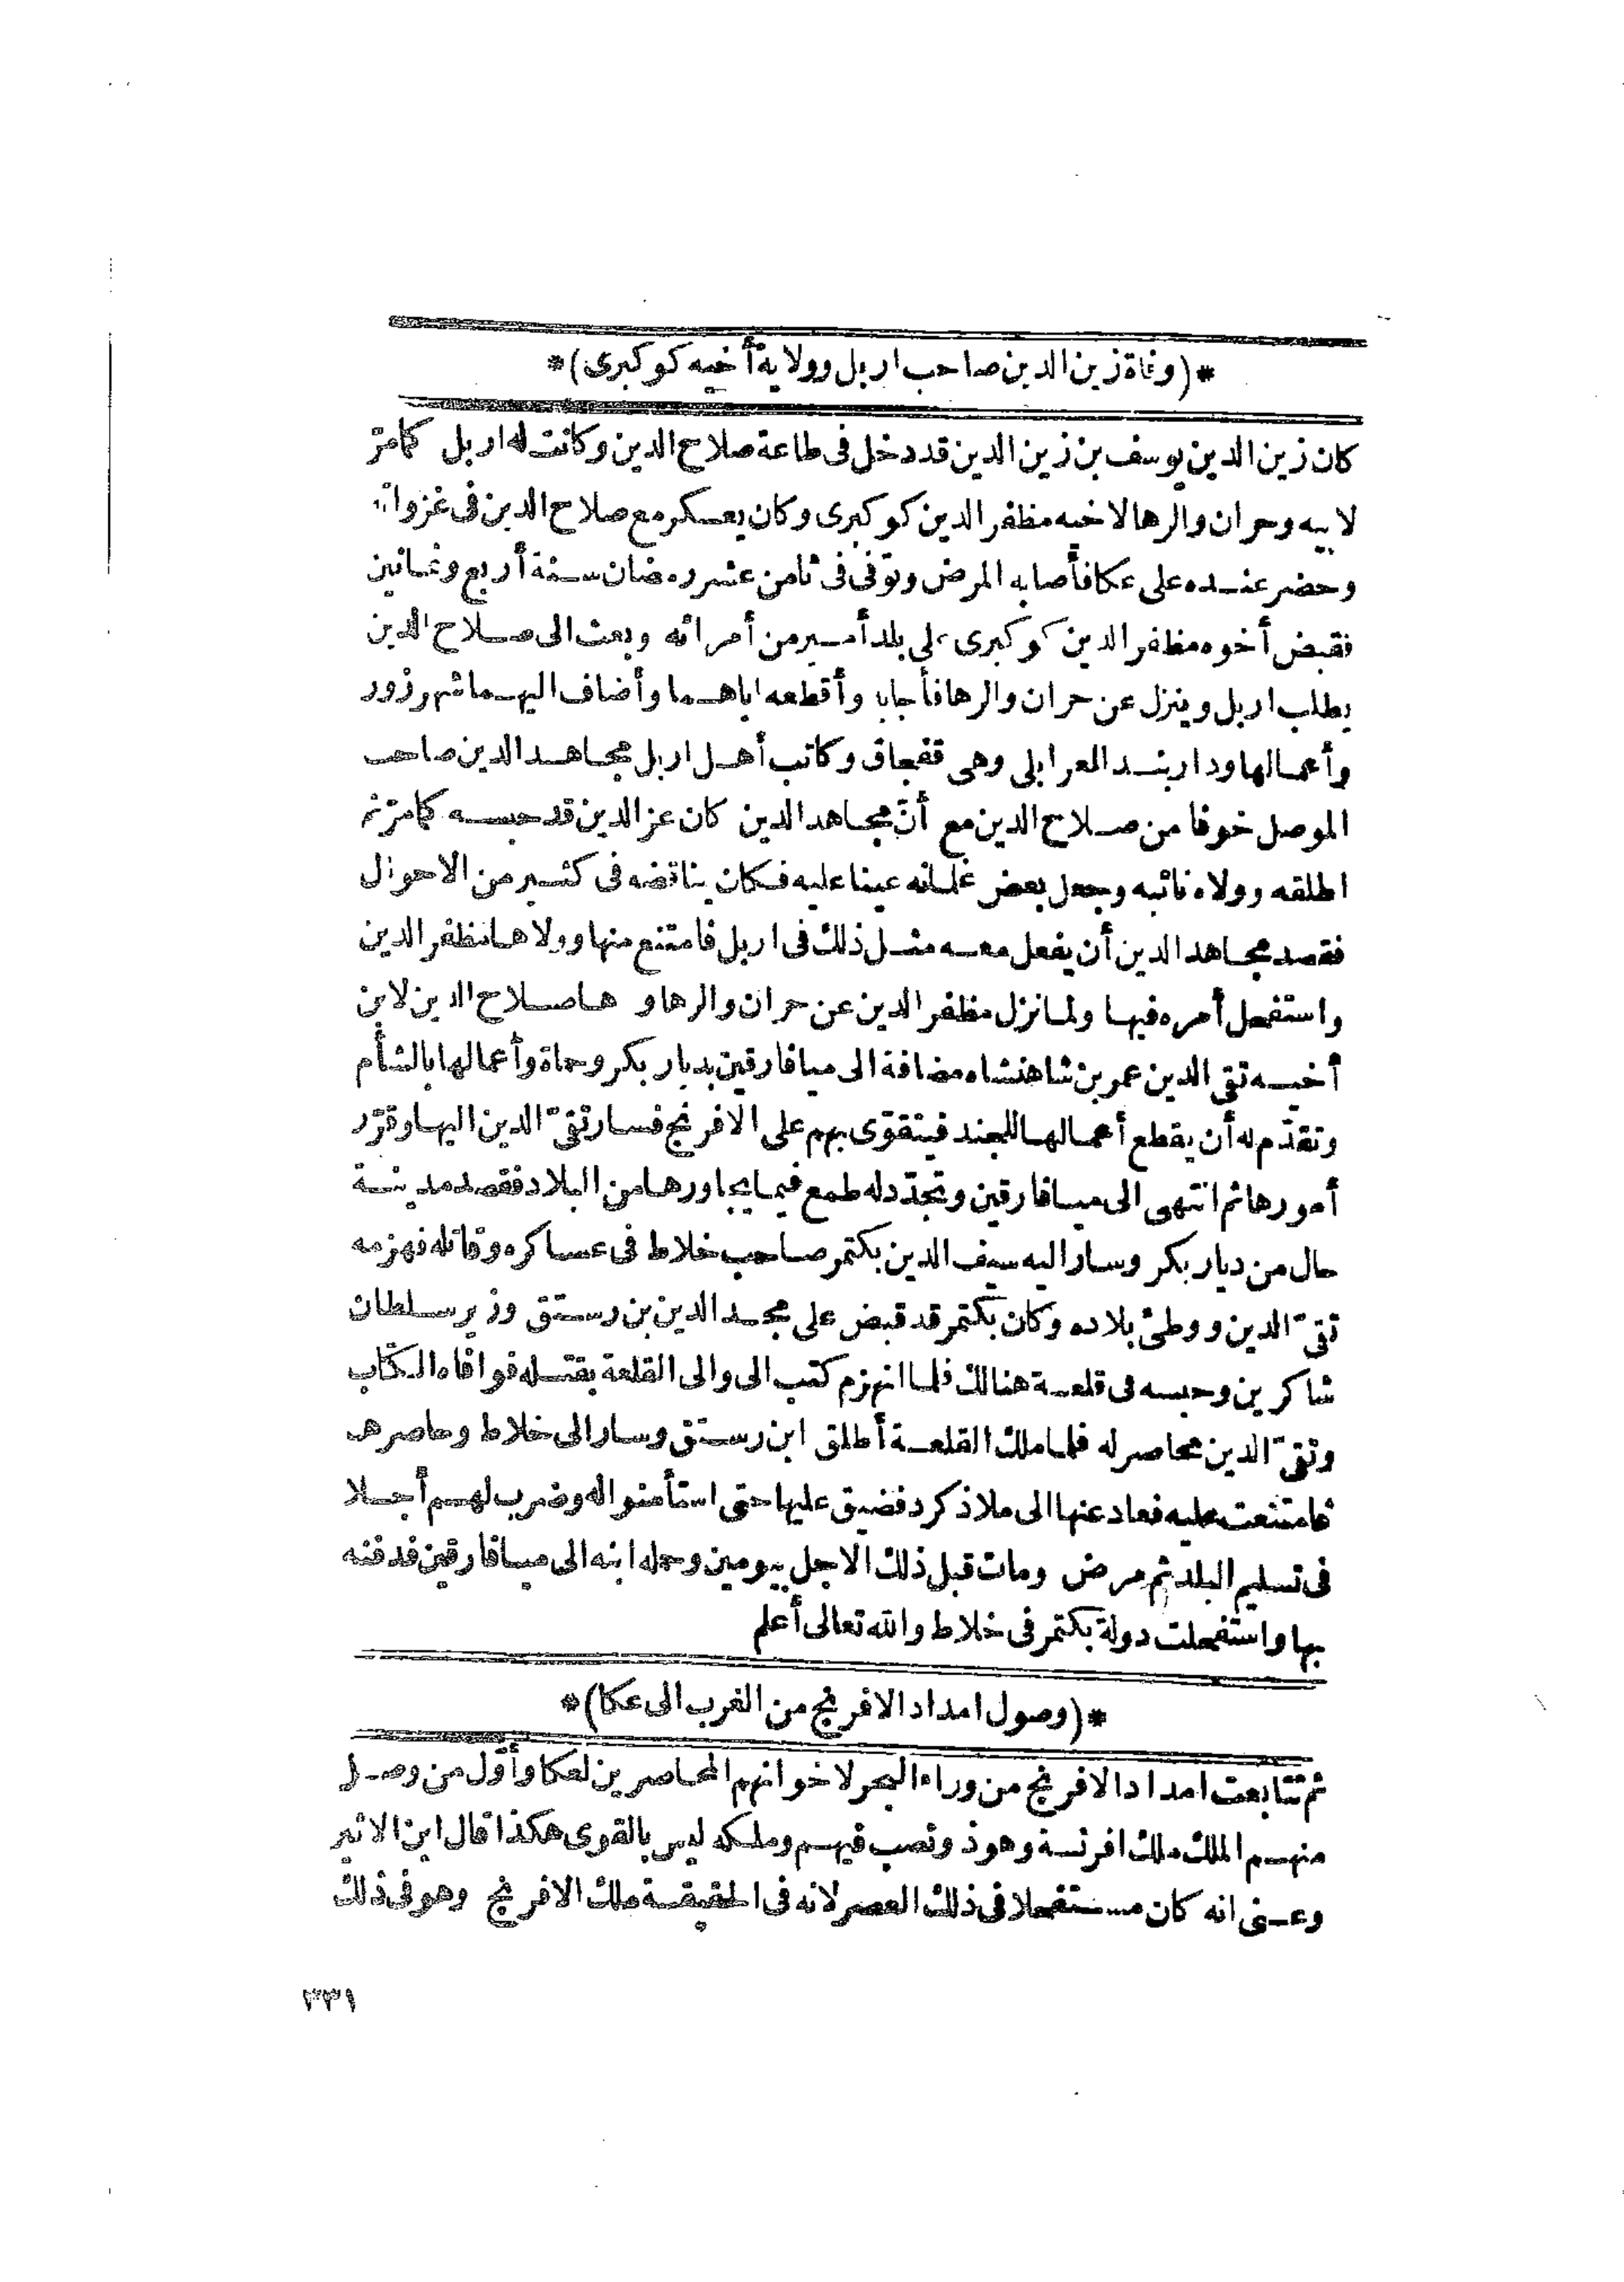 *(وفاة زين الدين صاحب اربل وولاية أخيه كوكبرى)*
كان زين الدين يوسف بن زين الدين قد دخل فى طاعة صلاح الدين وكانت له اربل كما مرّ
لابيه وحران والرها لاخيه مظفر الدين كوكبرى وكان يعسكر مع صلاح الدين فى غزواته
وحضر عنده على عكا فأصابه المرض وتوفى فى ثامن عشر رمضان سنة أربع وثمانين
فقبض أخوه مظفر الدين كوكبرى على بلد أمير من أمرائه وبعث الى صلاح الدين
يطلب اربل وينزل عن حران والرها فأجابا وأقطعه اياهما وأضاف اليهما شهرزور
وأعمالها ودار بند العرابلى وهى قفجاق وكاتب أهل اربل مجاهد الدين صاحب
الموصل خوفا من صلاح الدين مع أنّ مجاهد الدين كان عز الدين قد حبسه كما مرّ ثم
اطلقه وولاه نائبه وجعل بعض غلمانه عينا عليه فكان يناقضه فى كثير من الاحوال
فقصد مجاهد الدين أن يفعل معه مثل ذلك فى اربل فامتنع منها وولاها مظفر الدين
واستفحل أمره فيها ولما نزل مظفر الدين عن حران والرها و ها صلاح الدين لابن
أخيه تقى الدين عمر بن شاهنشاه مضافة الى ميافارقين بديار بكر وحماة وأعمالها بالشأم
وتقدّم له أن يقطع أعمالها للجند فيتقوّى بهم على الافرنج فسار تقىّ الدين اليها وقرّر
أمورها ثم انتهى الى ميافارقين وتجدّد له طمع فيما يجاورها من البلاد فقصد مدينة
حال من ديار بكر وسار اليه سيف الدين بكتمر صاحب خلاط فى عساكره وقاتله فهزمه
تقىّ الدين ووطئ بلاده وكان بكتمر قد قبض على مجد الدين بن رستق وزير سلطان
شاكرين وحبسه فى قلعة هنالك فلما انهزم كتب الى والى القلعة بقتله فوافاه الكتاب
وتقىّ الدين محاصر له فلما ملك القلعة أطلق ابن رستق وسار الى خلاط وحاصرها
فامتنعت عليه فعاد عنها الى ملاذكرد فضيق عليها حتى استأمنوا له وضرب لهم أجلا
فى تسليم البلد ثم مرض ومات قبل ذلك الاجل بيومين وحمله ابنه الى ميافارقين فدفنه
بها واستفحلت دولة بكتمر فى خلاط والله تعالى أعلم
*(وصول امداد الافرنج من الغرب الى عكا)*
ثم تتابعت امداد الافرنج من وراء البحر لاخوانهم المحاصرين لعكا وأوّل من وصل
منهم الملك ملك افرنسة وهو ذو نصب فيهم وملكه ليس بالقوى هكذا قال ابن الاثير
وعنى انه كان مستفحلا فى ذلك العصر لانه فى الحقيقة ملك الافرنج وهو فى ذلك
٣٣١